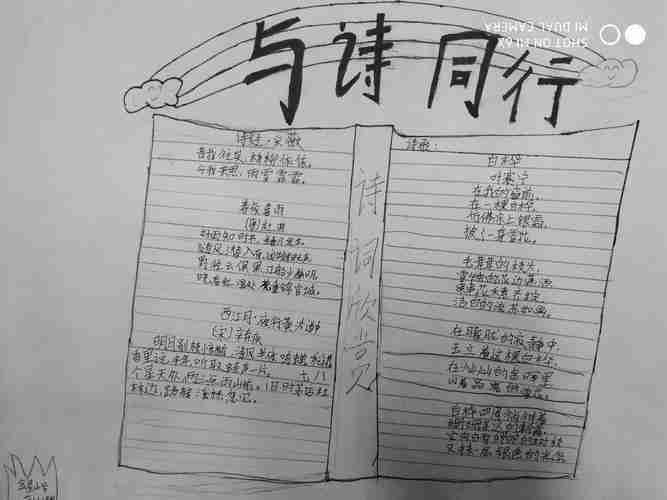 与诗同行
SHOT ON MI 6X
MI DUAL CAMERA
诗经·采薇
昔我往矣,杨柳依依。
今我来思,雨雪霏霏。
春夜喜雨
杜甫
好雨知时节,当春乃发生。
随风潜入夜,
野径云俱黑,江船火独明。
晓看红湿处,花重锦官城。
西江月·夜行黄沙道中
(宋)辛弃疾
明月别枝惊鹊,清风半夜鸣蝉。稻花
香里说丰年,听取蛙声一片。七八
个星天外,两三点雨山前。旧时茅店社
林边,路转溪桥忽见。
诗词欣赏
诗歌:
白桦
叶赛宁
在我的窗前,
有一棵白桦,
仿佛涂上银霜,
披了一身雪花。
毛茸茸的枝头,
雪绣的花边潇洒,
串串花穗齐绽,
洁白的流苏如画。
在朦胧的寂静中,
玉立着这棵白桦,
在灿灿的金晖里
闪着晶亮的雪花。
白桦四周徜徉着
姗姗来迟的朝霞,
它向白雪皑皑的树枝
又抹一层银色的光华